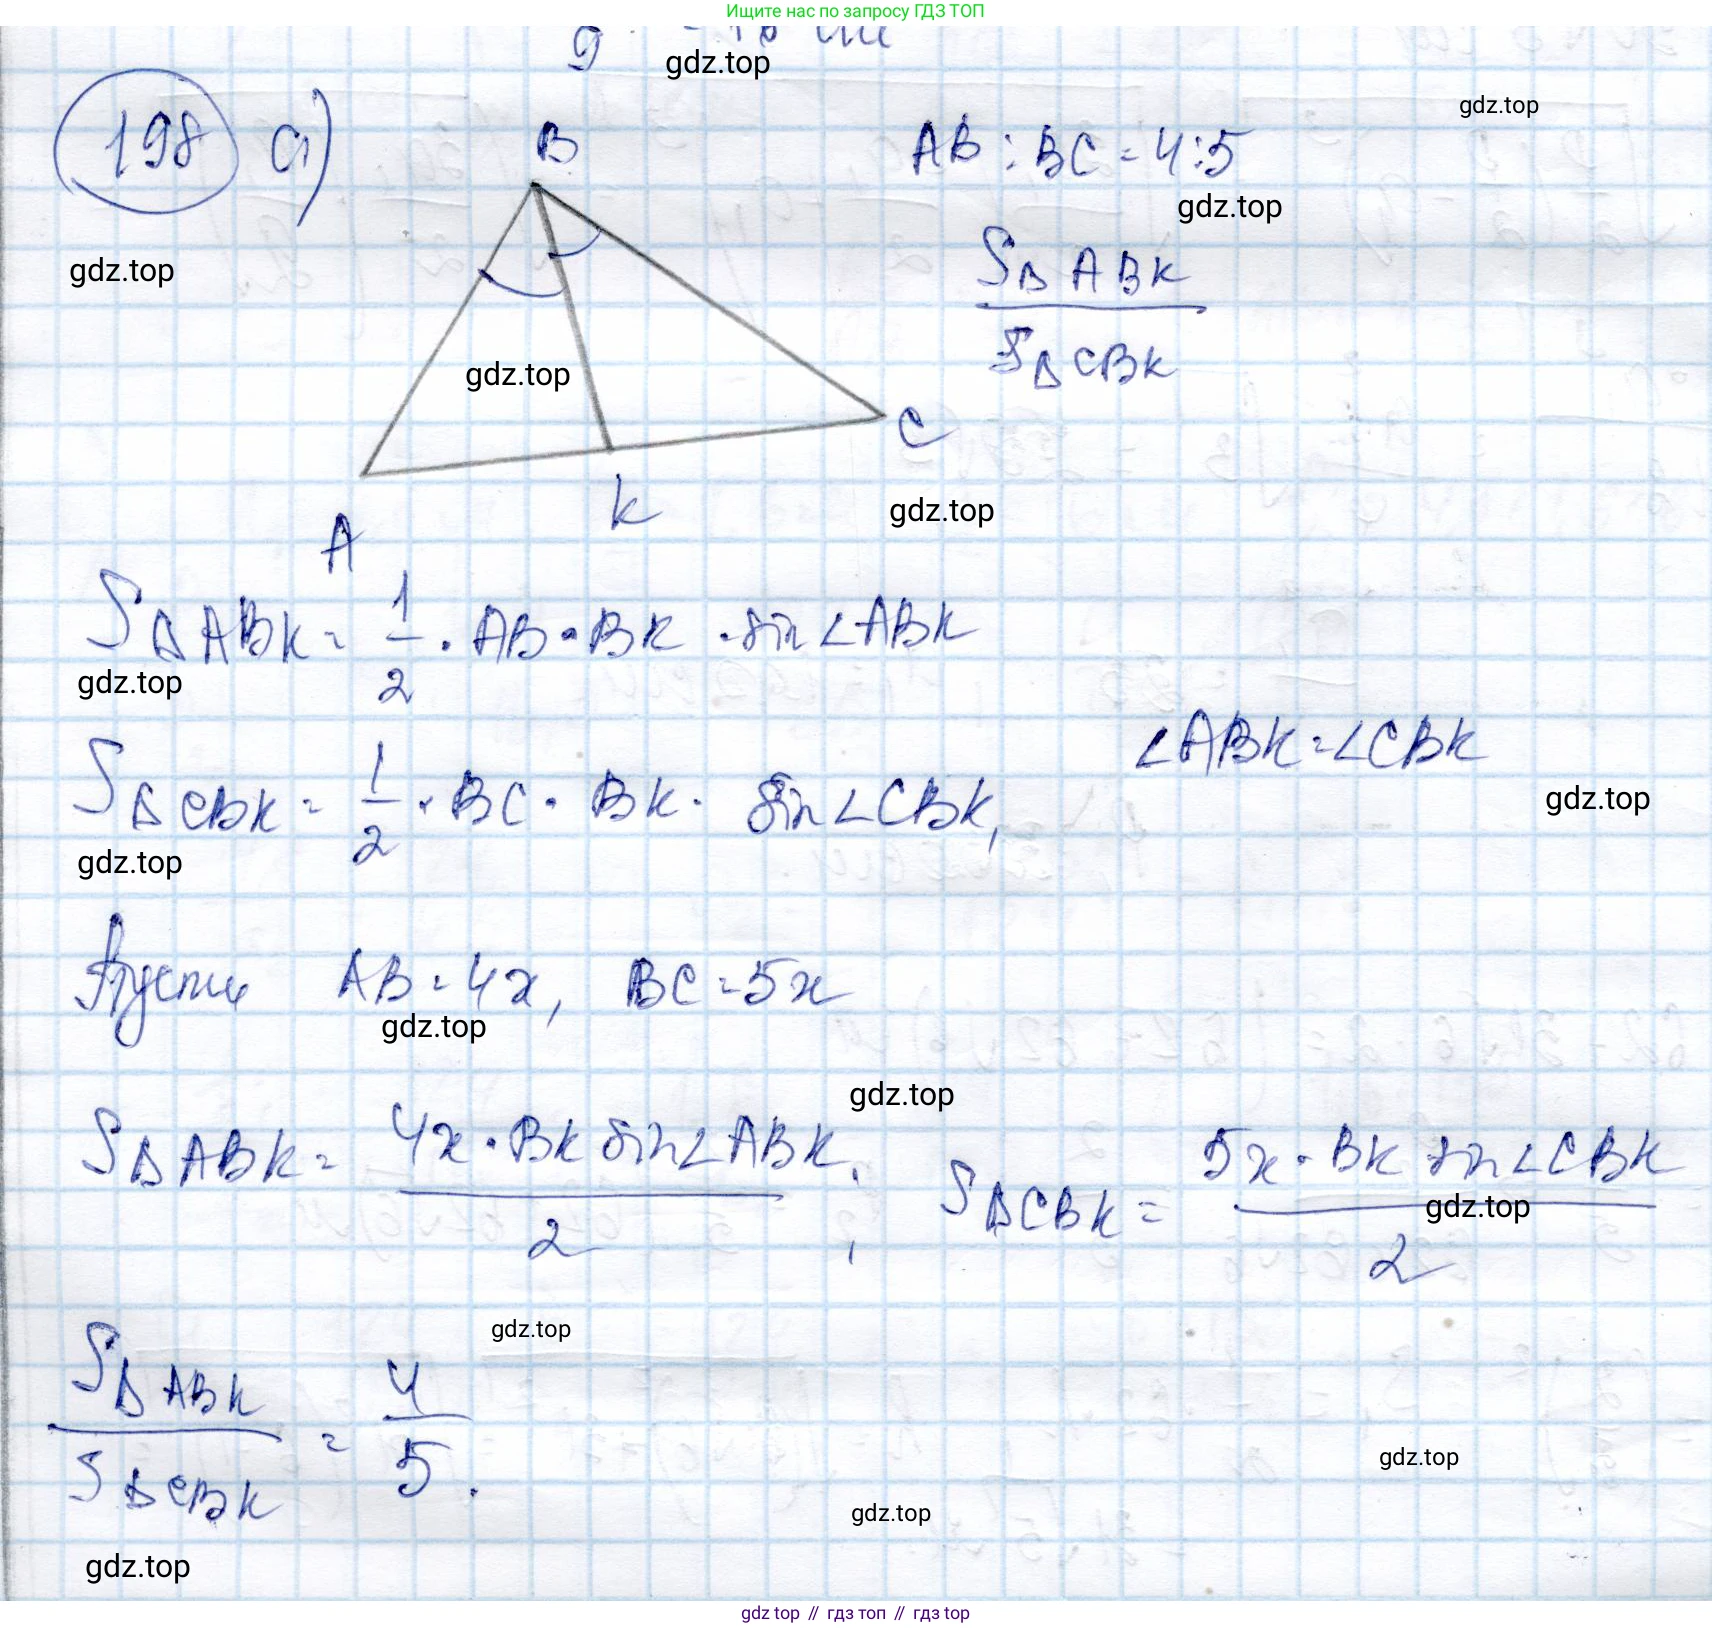 Ищите нас по запросу ГДЗ ТОП
9
gdz.top
198 а)
gdz.top
B
AB : BC = 4:5
gdz.top
gdz.top
S△ ABK
S△ CBK
gdz.top
C
K
gdz.top
A
S△ ABK = 1/2 · AB · BK · sin∠ABK
gdz.top
∠ABK = ∠CBK
S△ CBK = 1/2 · BC · BK · sin∠CBK,
gdz.top
gdz.top
Пусть AB = 4x, BC = 5x
gdz.top
gdz.top
S△ ABK = 4x · BK sin∠ABK / 2 ; S△ CBK = 5x · BK sin∠CBK / 2
gdz.top
gdz.top
S△ ABK / S△ CBK = 4/5.
gdz.top
gdz.top
gdz.top
gdz top // гдз топ // gdz.top